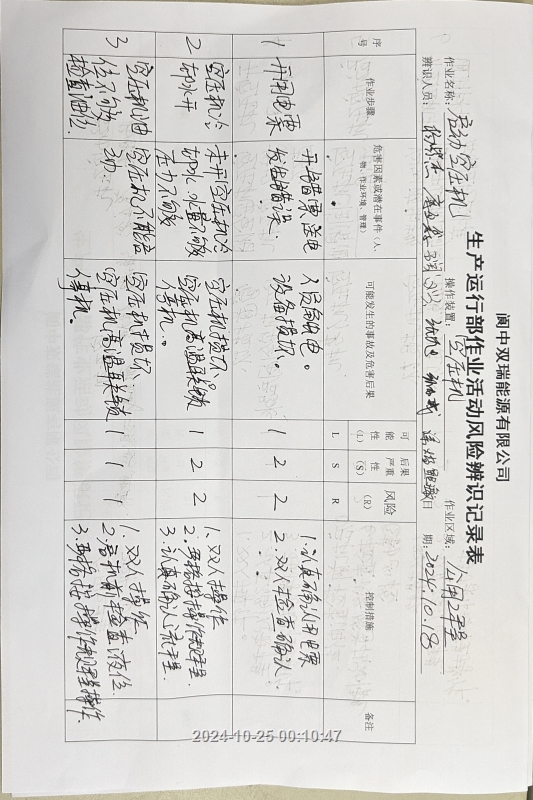 阆中双瑞能源有限公司
生产运行部作业活动风险辨识记录表
作业名称：启动空压机 操作装置：空压机 作业区域：公用工程
辨识人员： 日期：2024.10.18
序号 作业步骤 危害因素或潜在事件（人、物、作业环境、管理） 可能发生的事故及危害后果 可能性（L） 后果严重性（S） 风险（R） 控制措施 备注
L S R
1 开用电票 开错票送电发生错误. 人员触电。设备损坏。 1 2 2 1.认真确认用电票 2.双人检查确认.
2 空压机冷却水开 未开空压机冷却水.水量不够压力不够 空压机损坏 空压机高温联锁停机。 1 2 2 1.双人操作 2.严格按操作规程 3.认真确认流程.
3 空压机油位不够检查油位. 空压机不能启动. 空压机损坏 空压机高温联锁停机. 1 1 1 1.双人操作 2.启机前检查液位. 3.严格按操作规程操作.
2024-10-25 00:10:47